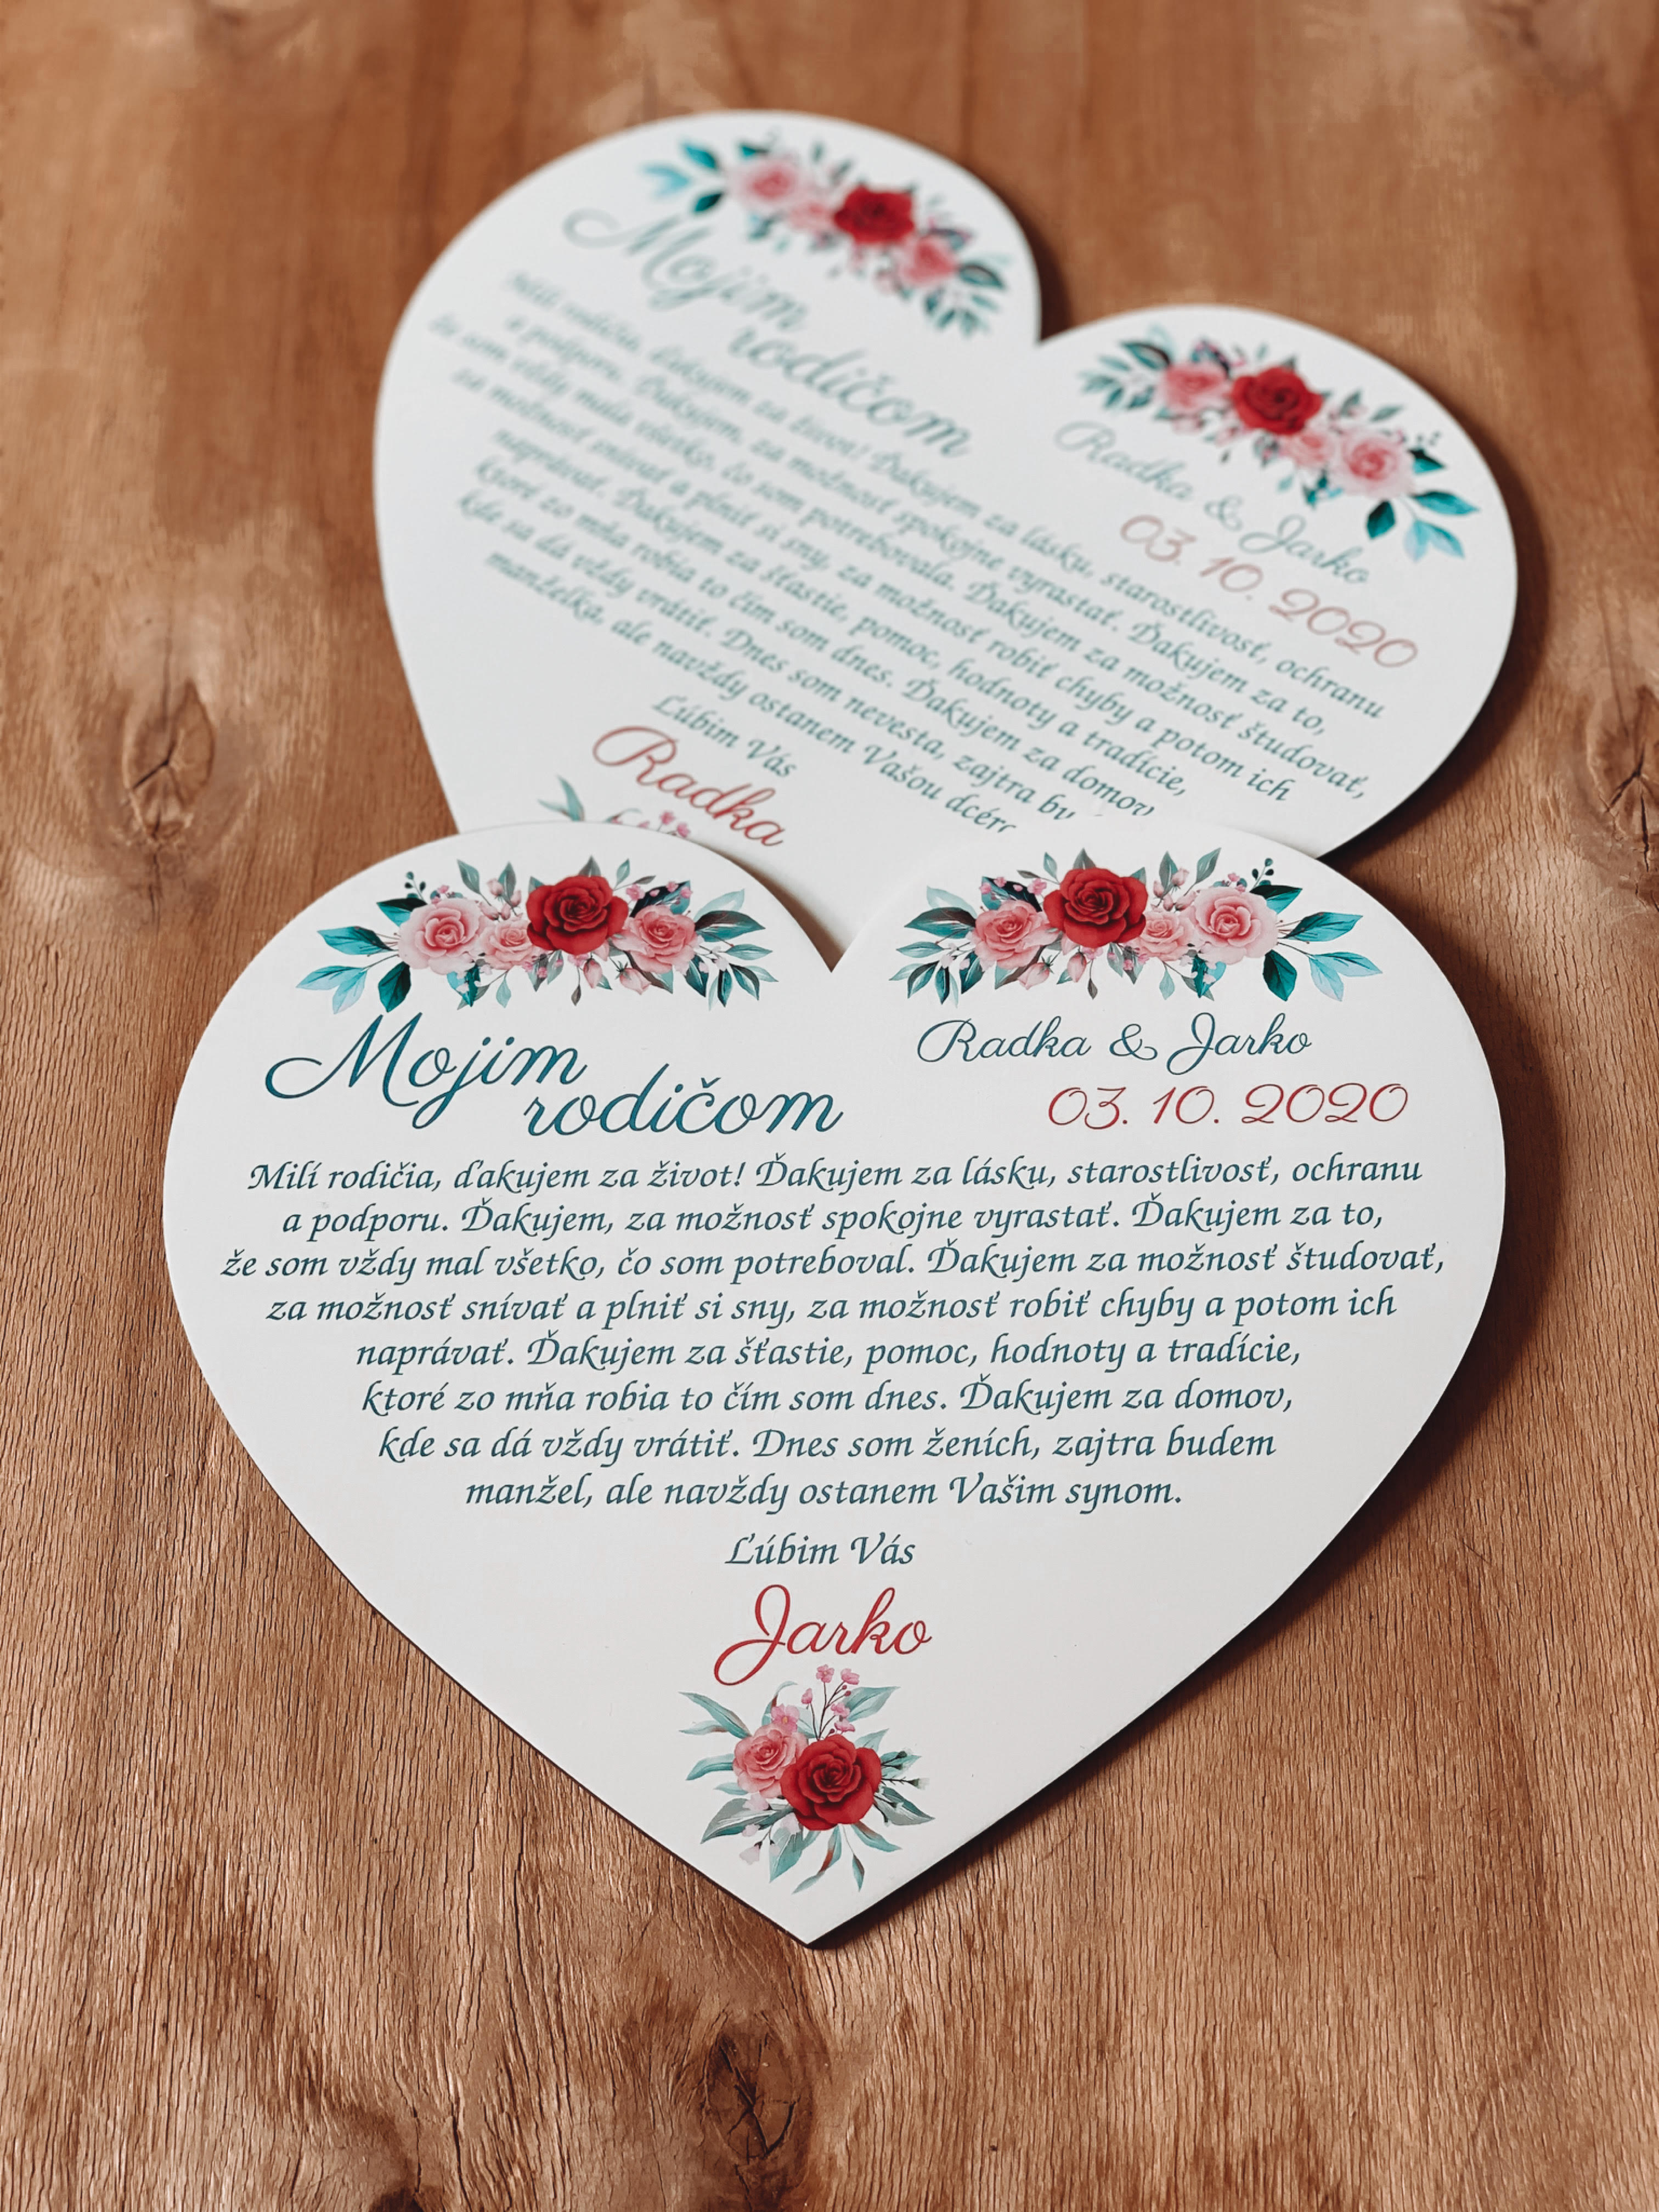 Mojim
rodičom
Radka & Jarko
03. 10. 2020
Milí rodičia, ďakujem za život! Ďakujem za lásku, starostlivosť, ochranu
a podporu. Ďakujem, za možnosť spokojne vyrastať. Ďakujem za to,
že som vždy mala všetko, čo som potrebovala. Ďakujem za možnosť študovať,
za možnosť snívať a plniť si sny, za možnosť robiť chyby a potom ich
naprávať. Ďakujem za šťastie, pomoc, hodnoty a tradície,
ktoré zo mňa robia to čím som dnes. Ďakujem za domov
kde sa dá vždy vrátiť. Dnes som nevesta, zajtra
manželka, ale navždy ostanem Vašou
Ľúbim Vás
Radka
Mojim
rodičom
Radka & Jarko
03. 10. 2020
Milí rodičia, ďakujem za život! Ďakujem za lásku, starostlivosť, ochranu
a podporu. Ďakujem, za možnosť spokojne vyrastať. Ďakujem za to,
že som vždy mal všetko, čo som potreboval. Ďakujem za možnosť študovať,
za možnosť snívať a plniť si sny, za možnosť robiť chyby a potom ich
naprávať. Ďakujem za šťastie, pomoc, hodnoty a tradície,
ktoré zo mňa robia to čím som dnes. Ďakujem za domov,
kde sa dá vždy vrátiť. Dnes som ženích, zajtra budem
manžel, ale navždy ostanem Vašim synom.
Ľúbim Vás
Jarko